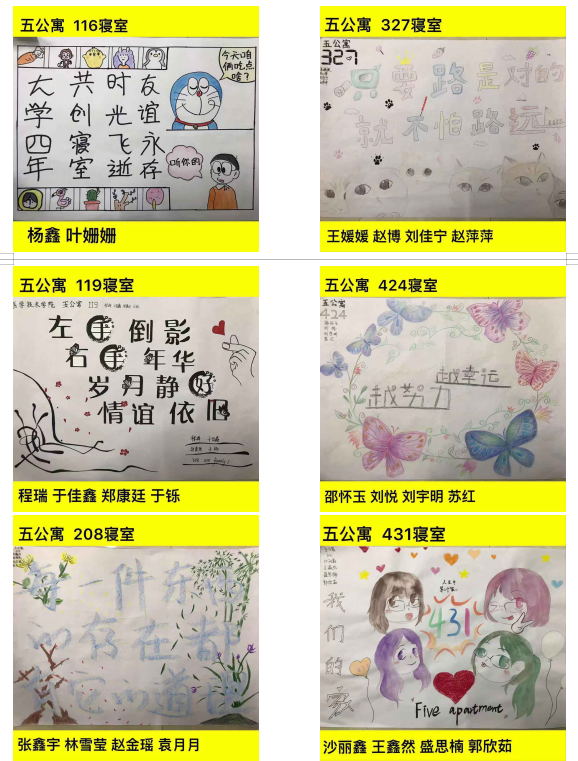 五公寓 116寝室
今天咱
俩吃点
啥？
大 共 时 友
学 创 光 谊
四 寝 飞 永
年 室 逝 存
听你的
杨鑫 叶姗姗
五公寓 327寝室
五公寓
327
只要路是对的
就不怕路远
王媛媛 赵博 刘佳宁 赵萍萍
五公寓 119寝室
五公寓 119
左手倒影
右手年华
岁月静好
情谊依旧
程瑞 于佳鑫 郑康廷 于铄
五公寓 424寝室
五公寓
424
越幸运
越努力
邵怀玉 刘悦 刘宇明 苏红
五公寓 208寝室
每一件东西
的存在都
有它的道理
张鑫宇 林雪莹 赵金瑶 袁月月
五公寓 431寝室
我
们
的
家
431
Five apartment
沙丽鑫 王鑫然 盛思楠 郭欣茹